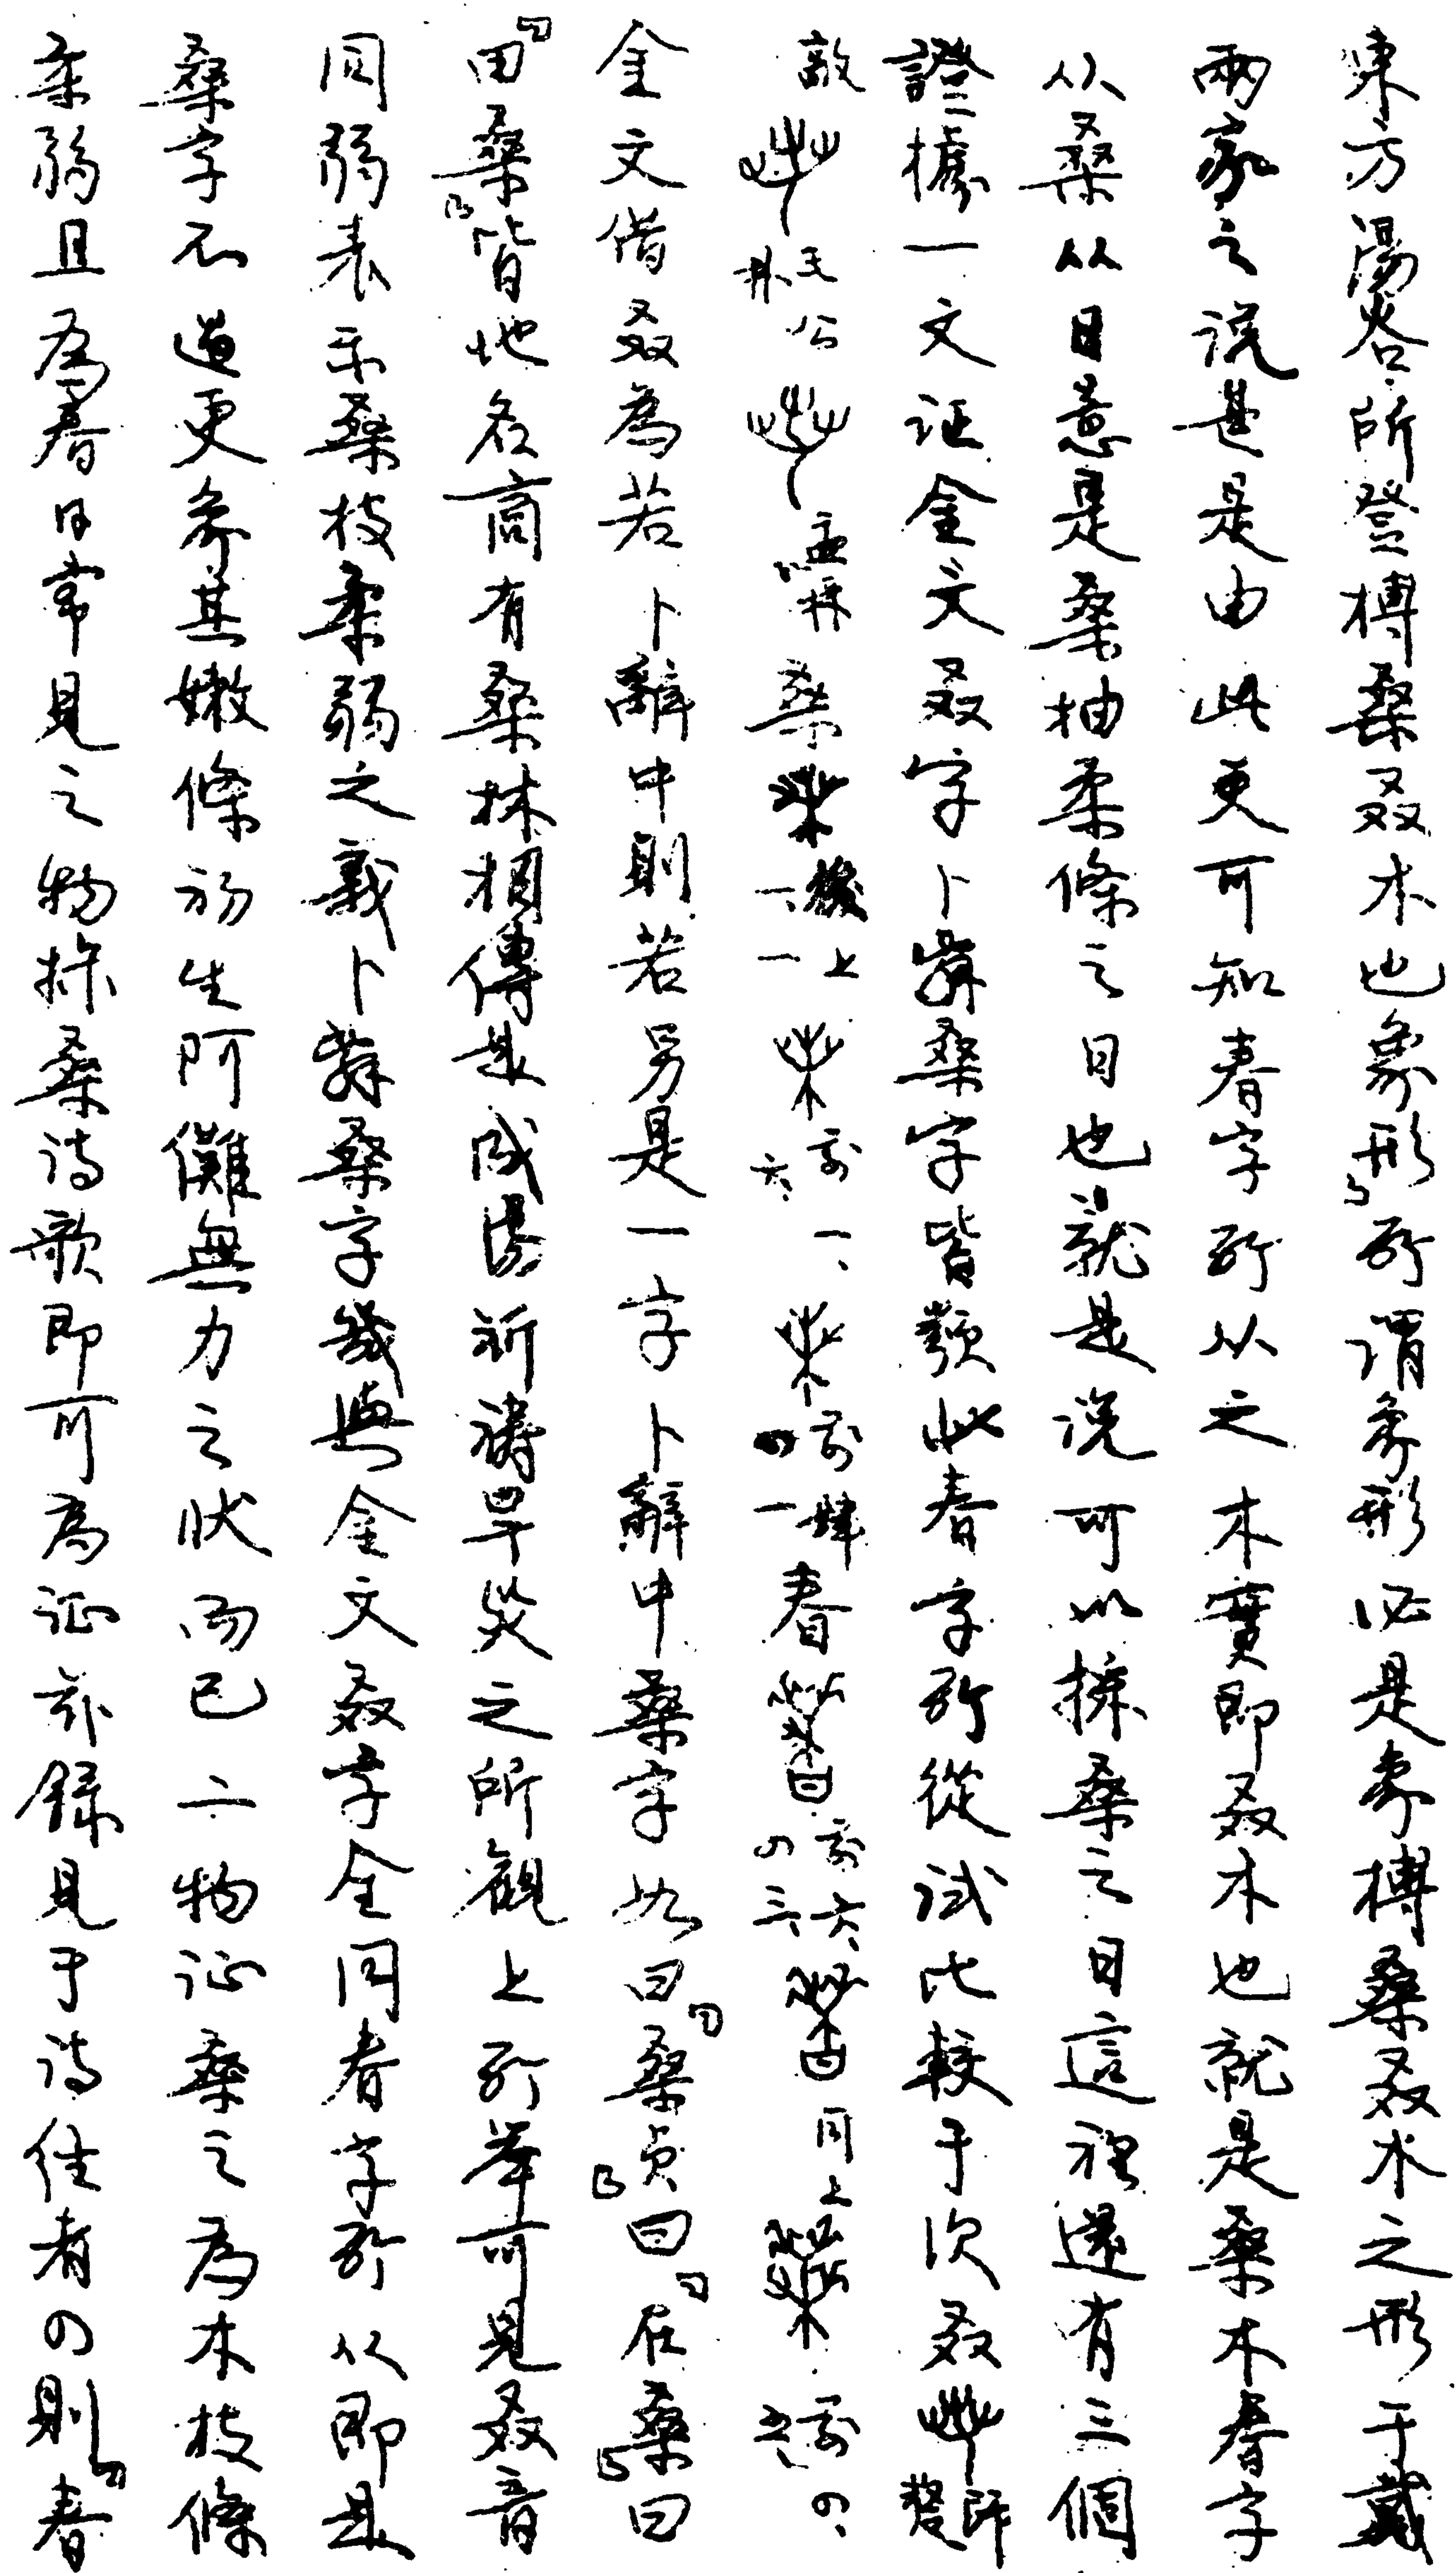 東方湯谷所登榑桑叒木也象形」所謂象形必是象榑桑叒木之形于戴
兩家之說甚是由此更可知春字所从之木實即叒木也就是桑木春字
从桑从日意是桑抽柔條之日也就是说可以採桑之日這裡還有三個
證據一文证金文叒字卜辭桑字皆類此春字所從试比較于次叒師㝨
敦毛公鼎盂鼎桑後上一、一前一、六、前肆四一春前六、四三、同上前四、五、
金文借叒為若卜辭中則若另是一字卜辭中桑字如曰「桑贞」曰「在桑」曰
「田桑」皆地名商有桑林相傳是成湯祈禱旱災之所觀上所举可見叒音
同弱表示桑枝柔弱之義卜辭桑字幾與金文叒字全同者字所从即是
桑字不過更象其嫩條初生阿儺無力之狀而已二物证桑之為木枝條
柔弱且為春日常見之物採桑诗歌即可為证兹録見于诗佳者の則「春